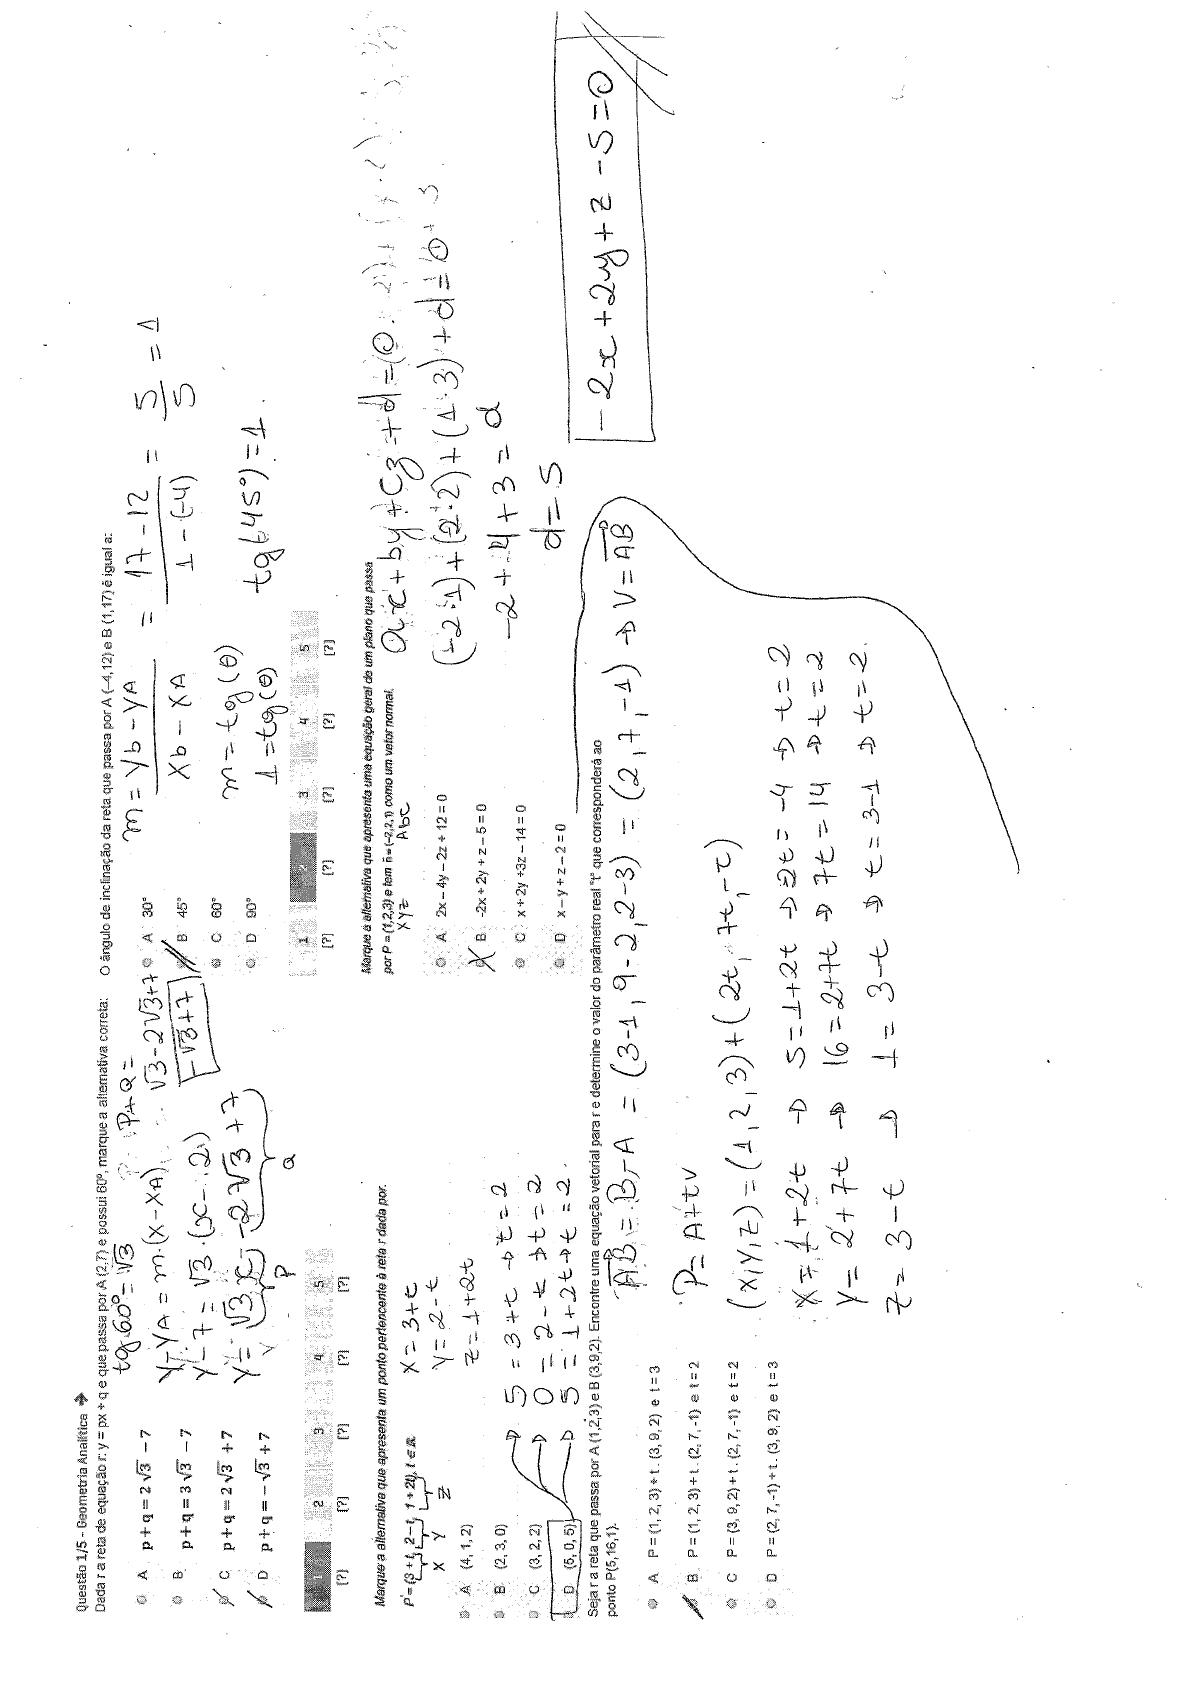 Questão 1/5 - Geometria Analítica
Dada r a reta de equação r: y = px + q e que passa por A (2,7) e possui 60º, marque a alternativa correta:
A p + q = 2√3 − 7
B p + q = 3√3 − 7
C p + q = 2√3 + 7
D p + q = − √3 + 7
tg 60° = √3
P+Q =
Y-YA = m.(X-XA)
√3-2√3+7
Y-7 = √3.(x-2)
-√3+7
Y = √3x -2√3+7
P
Q
1 2 3 4 5
[?] [?] [?] [?] [?]
O ângulo de inclinação da reta que passa por A (-4,12) e B (1,17) é igual a:
A 30°
B 45°
C 60°
D 90°
m = Yb - YA = 17-12 = 5 = 1
Xb - XA 1-(-4) 5
m = tg(θ)
1 = tg(θ)
tg(45°)=1.
1 2 3 4 5
[?] [?] [?] [?] [?]
Marque a alternativa que apresenta um ponto pertencente à reta r dada por:
P = (3 + t, 2 − t, 1 + 2t), t ∈ R
X Y Z
A (4, 1, 2)
B (2, 3, 0)
C (3, 2, 2)
D (5, 0, 5)
X = 3+t
Y = 2-t
Z = 1+2t
5 = 3+t → t=2
0 = 2-t → t=2
5 = 1+2t → t=2.
Marque a alternativa que apresenta uma equação geral de um plano que passa
por P = (1,2,3) e tem n = (-2,2,1) como um vetor normal.
XYZ Abc
A 2x − 4y − 2z + 12 = 0
B -2x + 2y + z − 5 = 0
C x + 2y +3z − 14 = 0
D x − y + z − 2 = 0
ax+by+cz+d=0
(-2.1)+(2.2)+(1.3)+d=0
-2+4+3=d
d=-5
-2x+2y+z-5=0
Seja r a reta que passa por A (1,2,3) e B (3,9,2). Encontre uma equação vetorial para r e determine o valor do parâmetro real "t" que corresponderá ao
ponto P(5,16,1).
A P = (1, 2, 3) + t . (3, 9, 2) e t = 3
B P = (1, 2, 3) + t . (2, 7, -1) e t = 2
C P = (3, 9, 2) + t . (2, 7, -1) e t = 2
D P = (2, 7, -1) + t . (3, 9, 2) e t = 3
AB = B-A = (3-1, 9-2, 2-3) = (2,7,-1) → V = AB
P = A+tv
(X,Y,Z) = (1,2,3)+(2t, 7t, -t)
X = 1+2t → 5=1+2t → 2t=-4 → t=2
Y = 2+7t → 16=2+7t → 7t=14 → t=2
Z = 3-t → 1=3-t → t=3-1 → t=2.